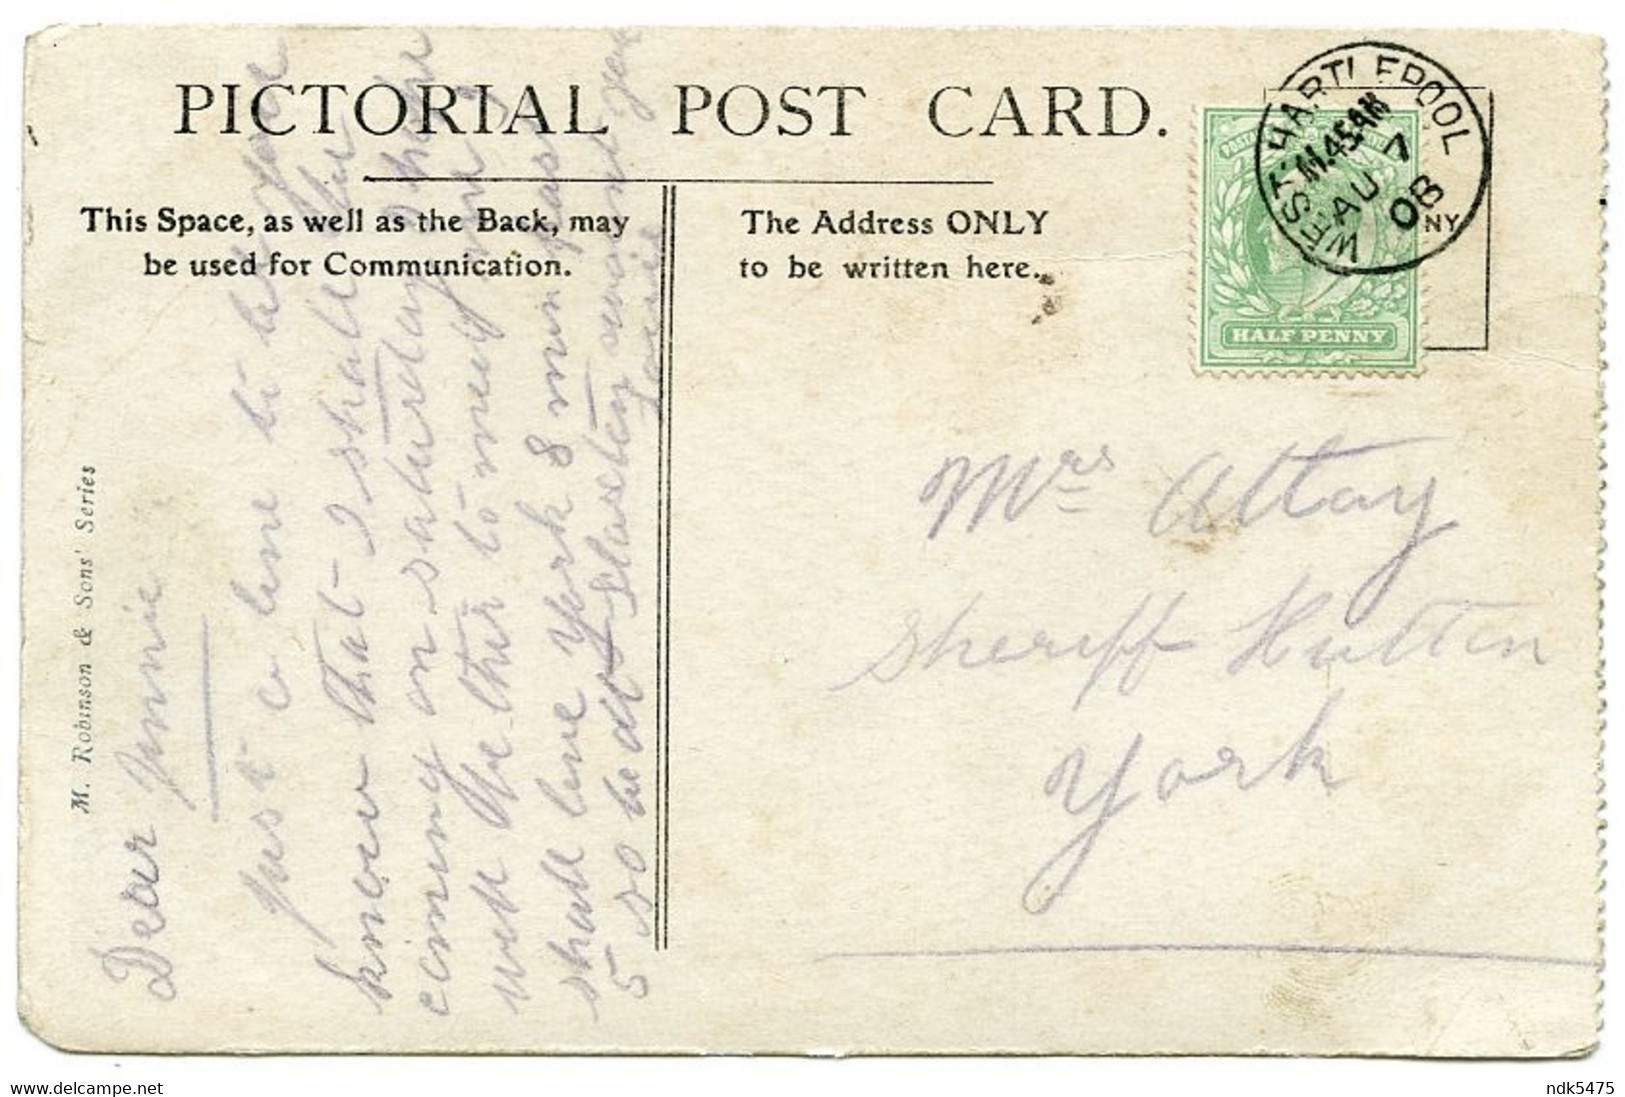 PICTORIAL POST CARD.
This Space, as well as the Back, may
be used for Communication.
The Address ONLY
to be written here.
WEST HARTLEPOOL
11.45AM
AU 7
08
HALF PENNY
M. Robinson & Sons' Series
Dear Jennie
just a line to let you
know that I shall be
coming on saturday the
well the other to meet me
shall leve York 8 min past
5 so be at
Mrs Attay
Sheriff Hutton
York
www.delcampe.net
ndk5475